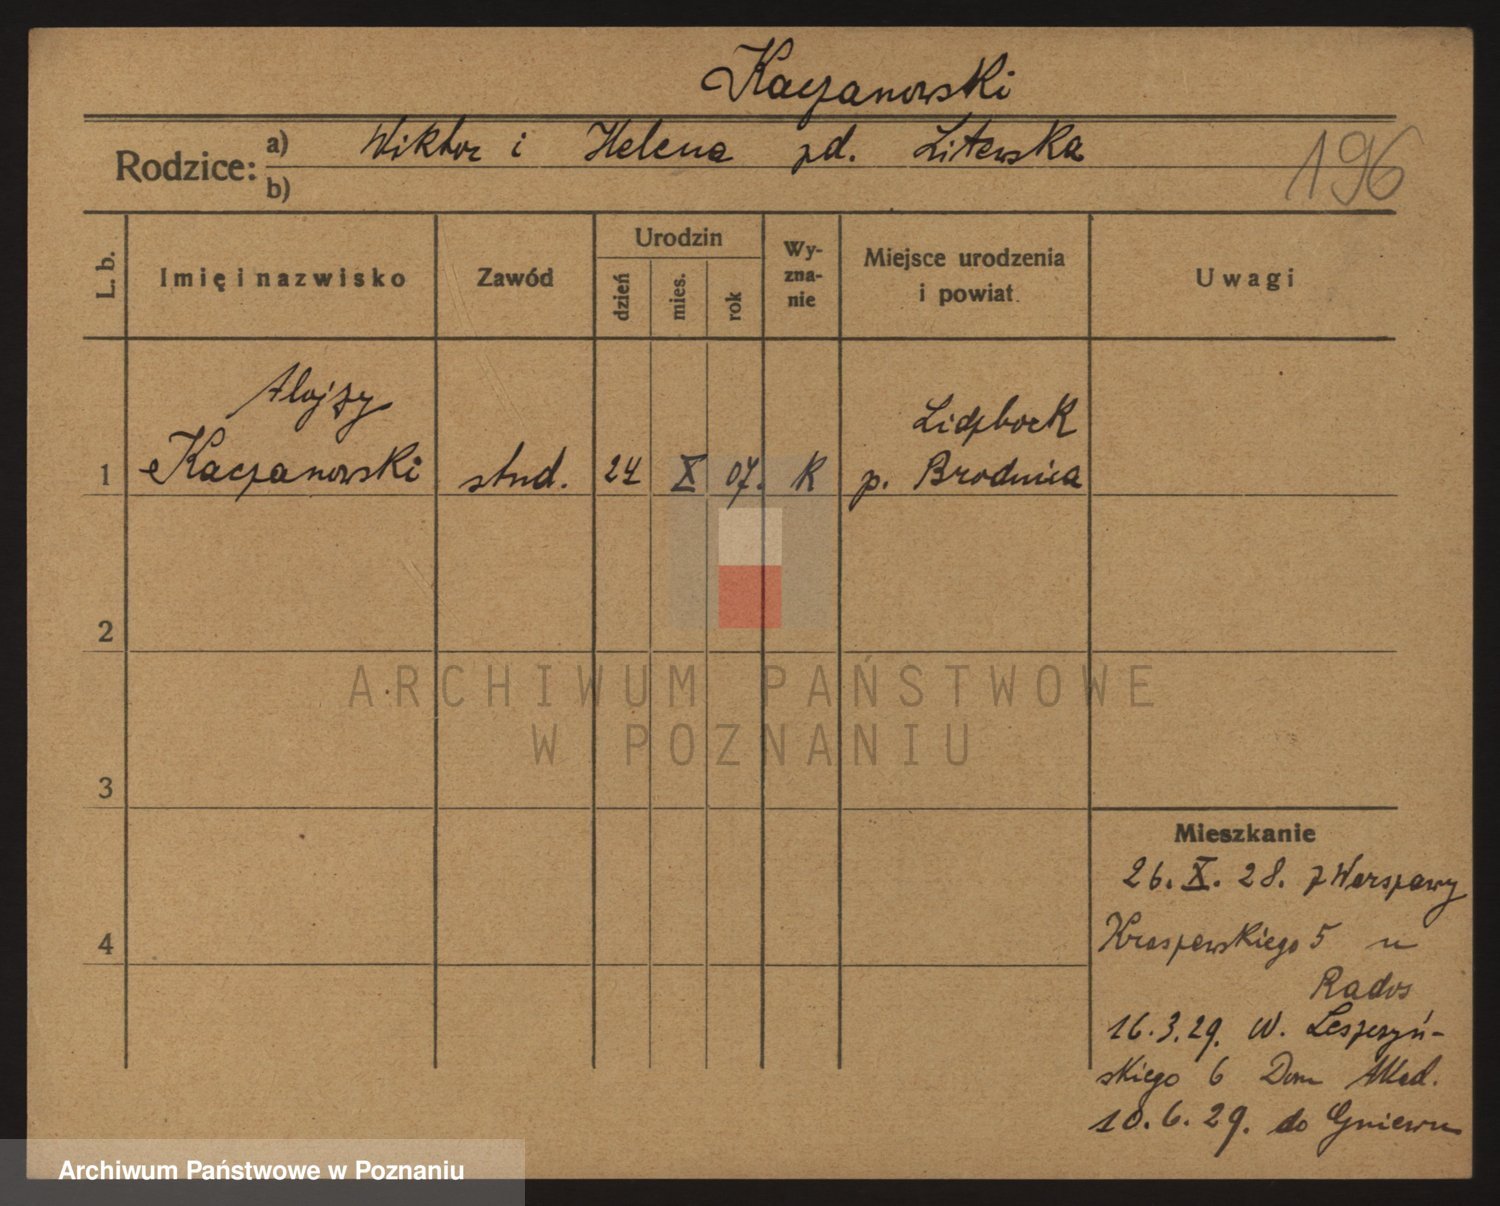 Kaczanowski
Rodzice: a) Wiktor i Helena zd. Litewska
b)
196
L. b.
Imię i nazwisko
Zawód
Urodzin
dzień
mies.
rok
Wy-
zna-
nie
Miejsce urodzenia
i powiat
Uwagi
Alojzy
Lidzbark
1 Kaczanowski stud. 24 X 07. K p. Brodnica
2
3
4
ARCHIWUM PAŃSTWOWE
W POZNANIU
Mieszkanie
26. X. 28. z Warszawy
Kraszewskiego 5 u
Rados
16.3.29. W. Leszczyń-
skiego 6 Dom Akad.
10.6.29. do Gniewu
Archiwum Państwowe w Poznaniu